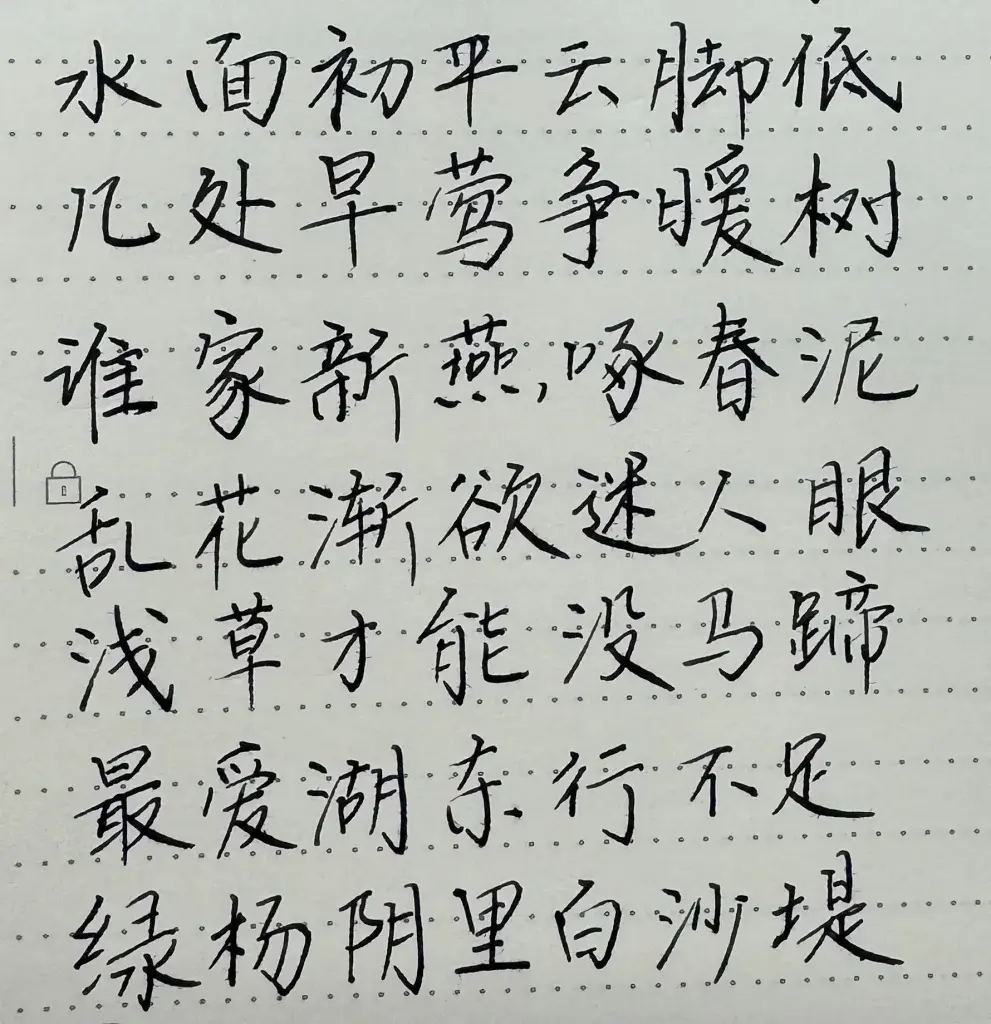 水面初平云脚低
几处早莺争暖树
谁家新燕,啄春泥
乱花渐欲迷人眼
浅草才能没马蹄
最爱湖东行不足
绿杨阴里白沙堤